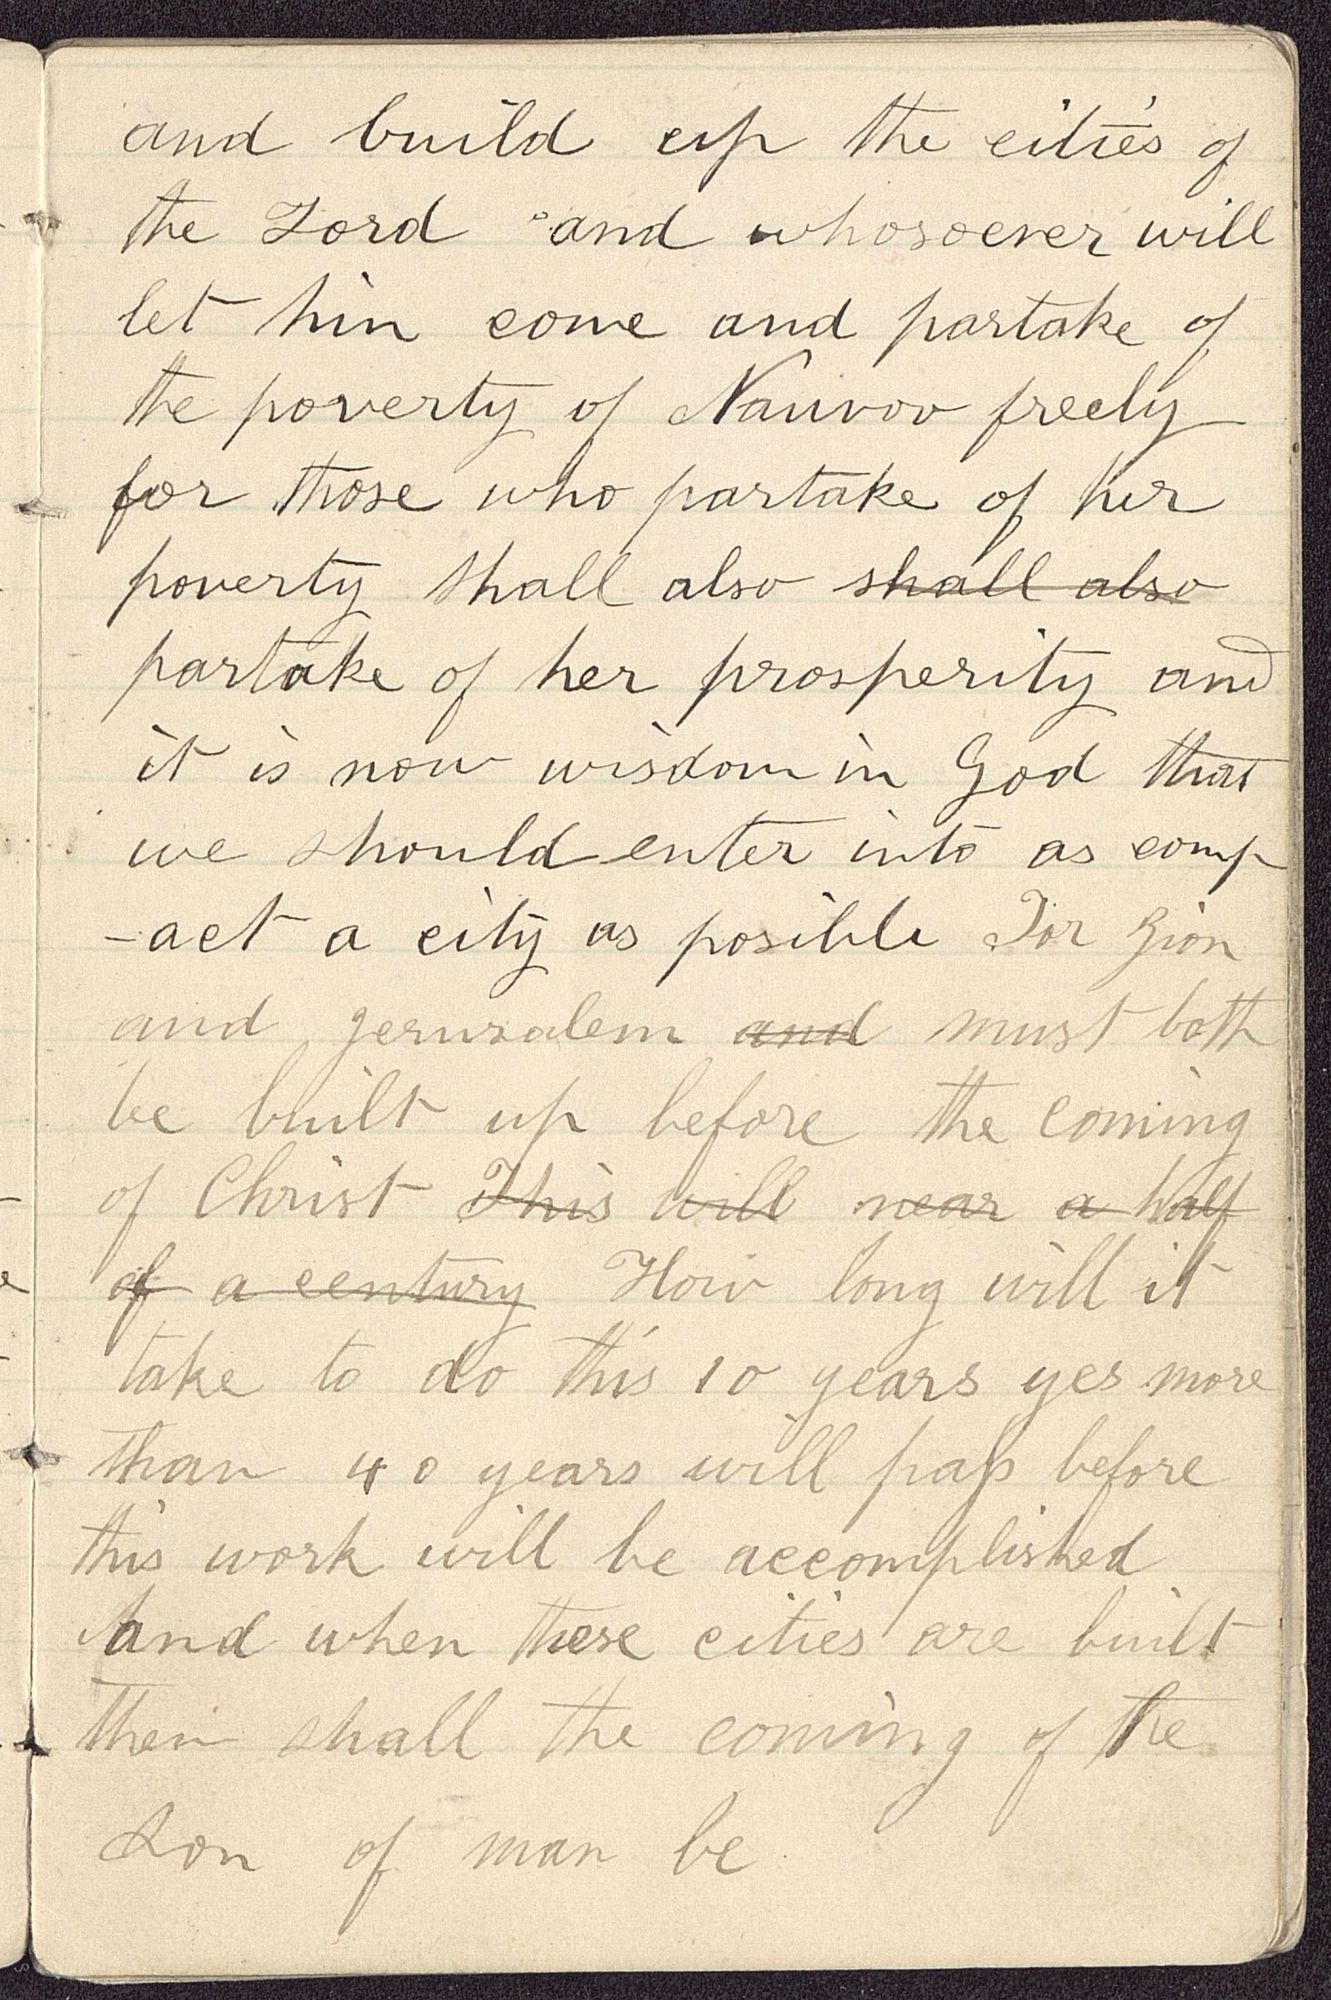 and build up the cities of
the Lord and whosoever will
let him come and partake of
the poverty of Nauvoo freely
for those who partake of her
poverty shall also ~~shall also~~
partake of her prosperity and
it is now wisdom in God that
we should enter into as comp
-act a city as posible For Zion
and jerusalem ~~and~~ must both
be built up before the coming
of Christ ~~This will near a half~~
~~of a century~~ How long will it
take to do this 10 years yes more
than 40 years will pass before
this work will be accomplished
and when these cities are built
then shall the coming of the
Son of man be